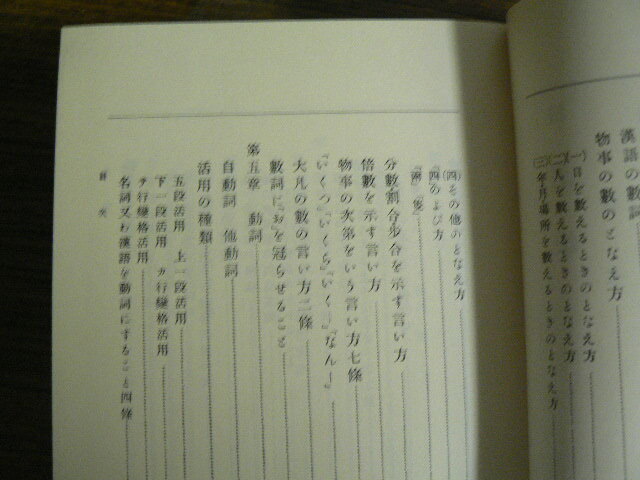 漢語の數詞
物事の數のとなえ方
(一)日を數えるときのとなえ方
(二)人を數えるときのとなえ方
(三)年月場所を數えるときのとなえ方
(四)その他のとなえ方
『四』のよび方
分數割合歩合を示す言い方
倍數を示す言い方
物事の次第をいう言い方七條
『いくつ』『いくら』『いく―』『なん―』
大凡の數の言い方二條
數詞に『お』を冠らせること
第五章 動詞
自動詞 他動詞
活用の種類
五段活用 上一段活用
下一段活用 カ行變格活用
サ行變格活用
名詞又わ漢語を動詞にすること四條
目次